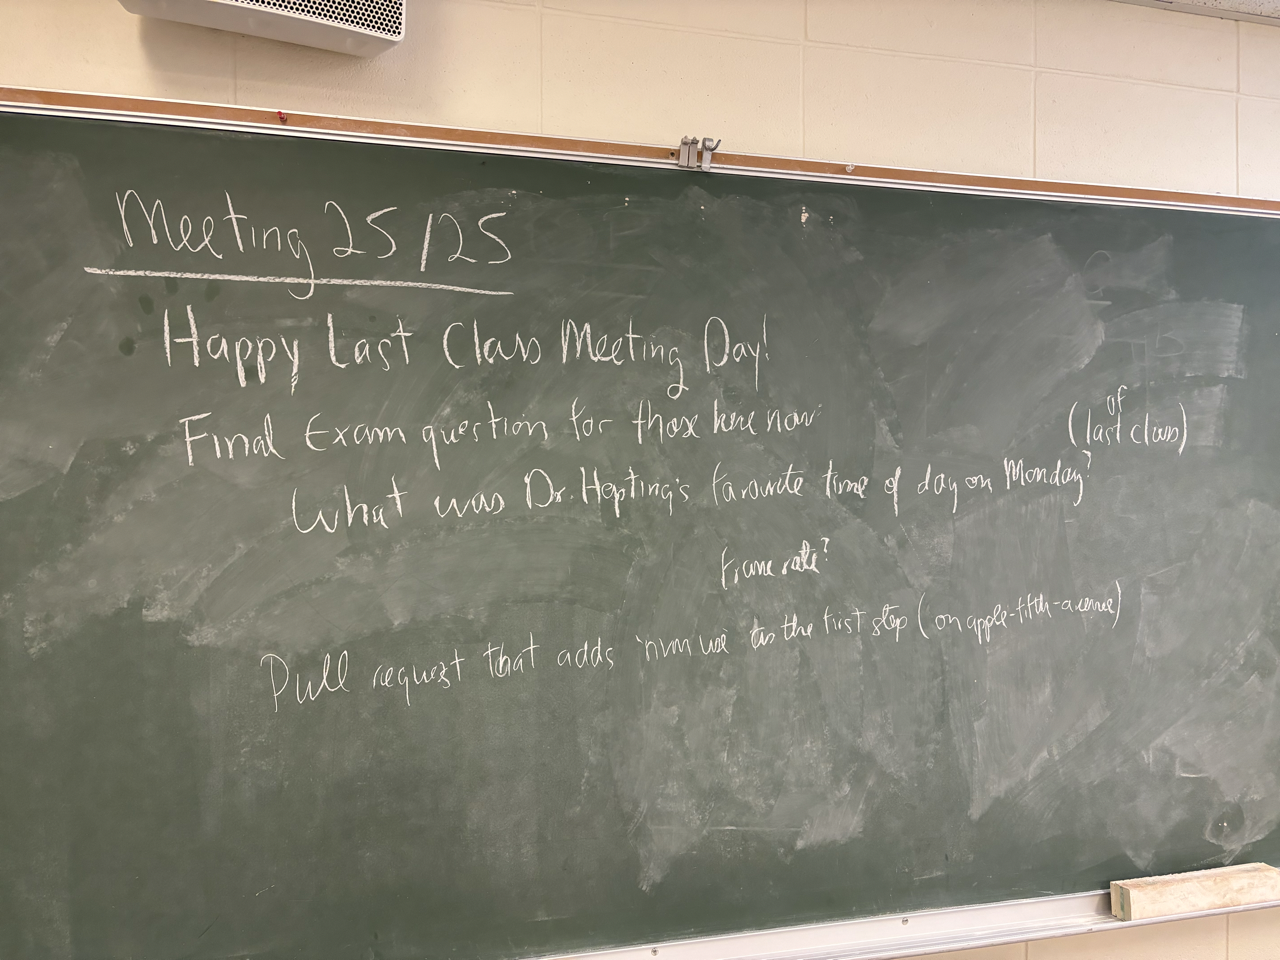 Meeting 25/25
Happy Last Class Meeting Day!
Final Exam question for those here now:
(of last class)
What was Dr. Hepting's favourite time of day on Monday?
frame rate?
Pull request that adds 'nvm use' as the first step (on apple-fifth-avenue)